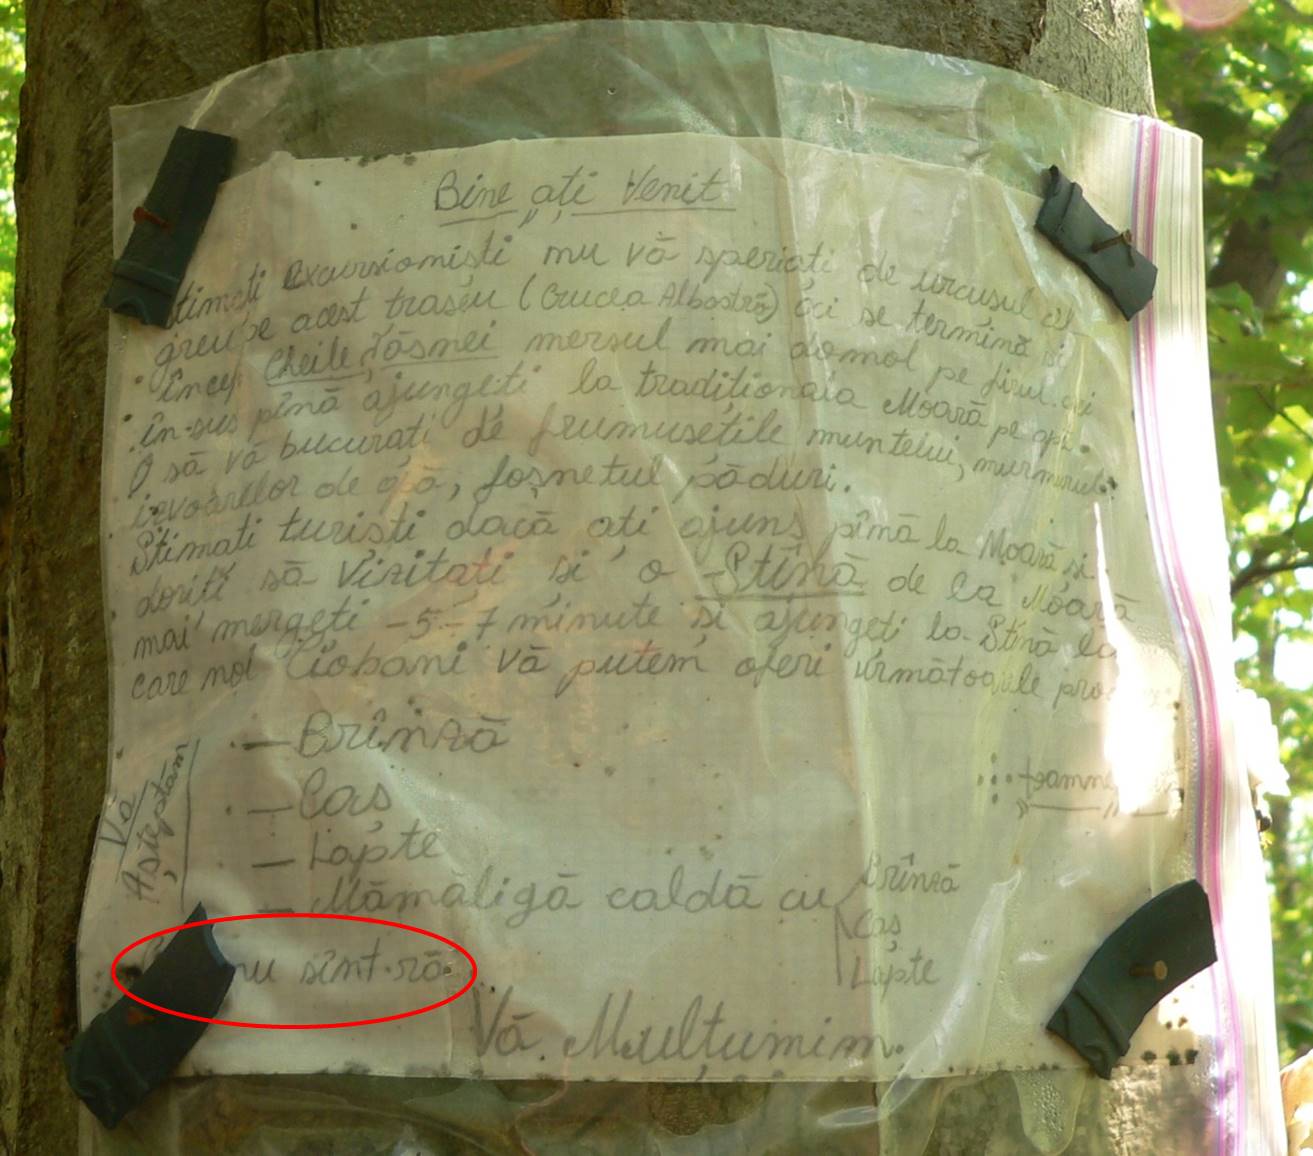 Bine ați Venit
excursioniști nu vă speriați de urcușul
greu pe acest traseu (Crucea Albastră) se termină și
încep Cheile Țăsnei mersul mai domol pe firul
în-sus pînă ajungeți la tradiționala Moară pe apă.
O să vă bucurați de frumusețile muntelui, murmurul
izvoarelor de apă, foșnetul păduri.
Stimați turiști dacă ați ajuns pînă la Moară și
doriți să vizitați și o Stînă de la Moară
mai mergeți -5-7 minute și ajungeți la Stînă la
care noi Ciobani vă putem oferi următoarele
Vă Așteptăm
— Brînză
— Caș
— Lapte
— Mămăligă caldă cu Brînză
Caș
Lapte
nu sînt ră
Vă Mulțumim.